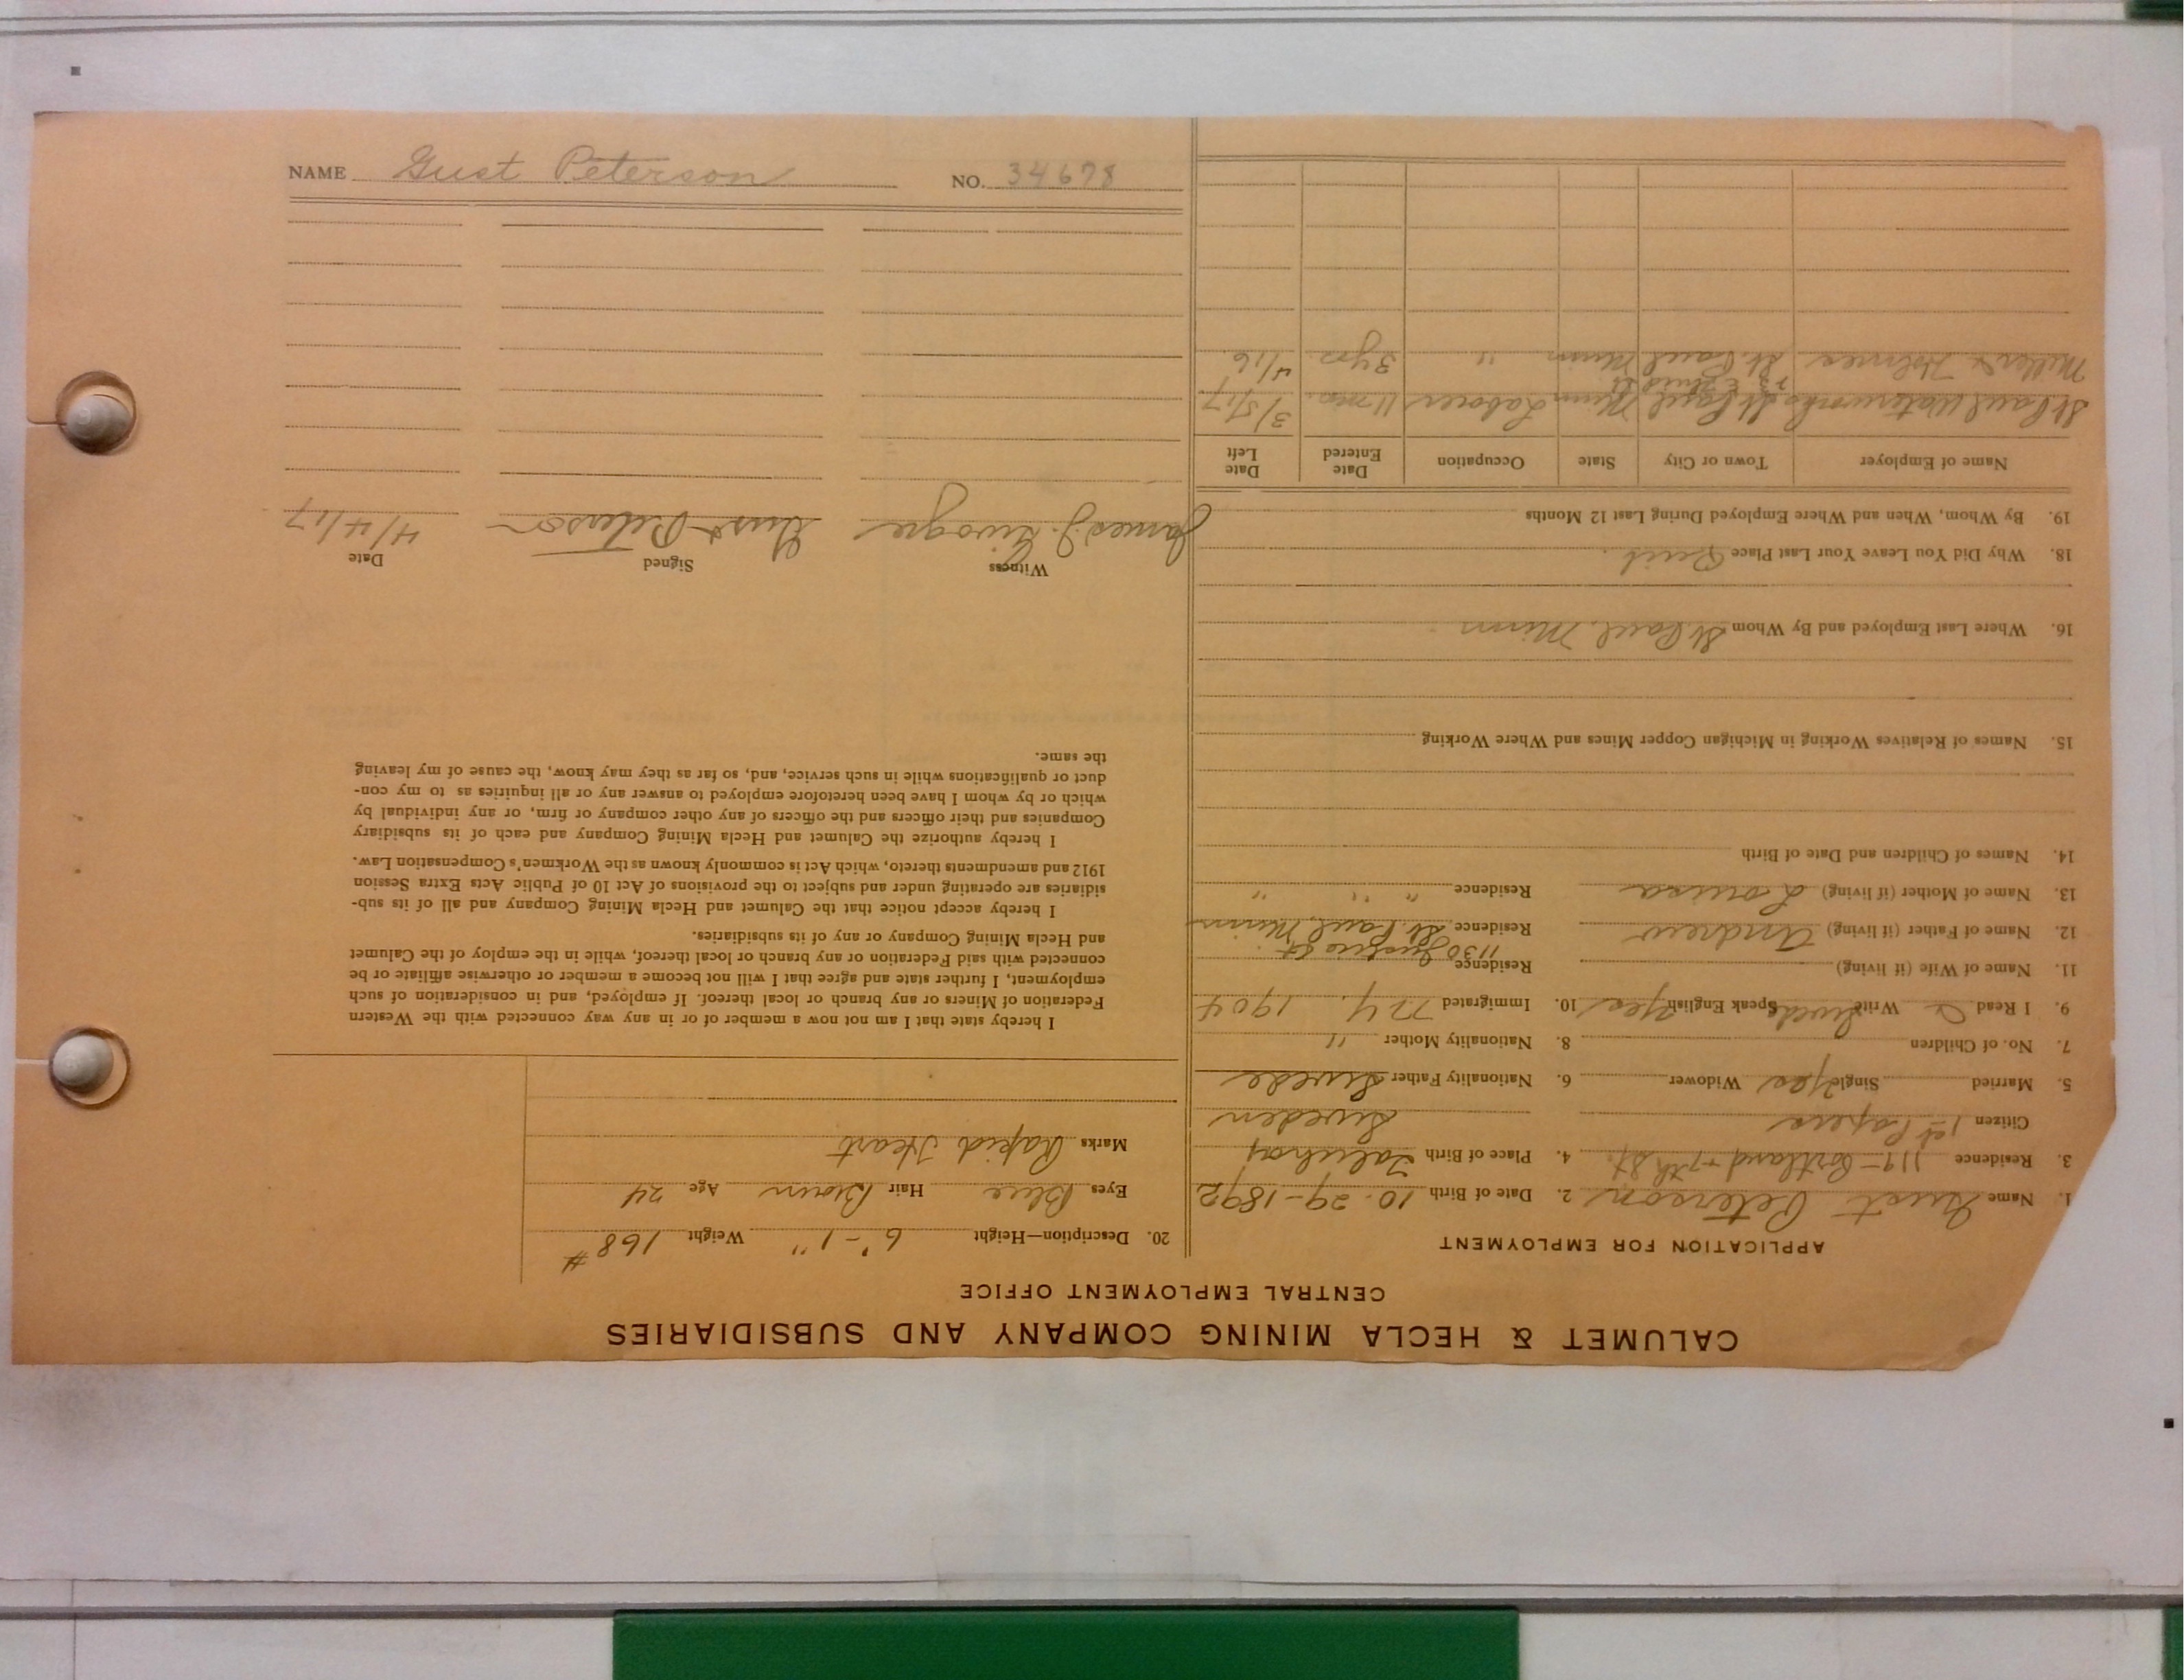 CALUMET & HECLA MINING COMPANY AND SUBSIDIARIES
CENTRAL EMPLOYMENT OFFICE
APPLICATION FOR EMPLOYMENT
1. Name Gust Peterson 2. Date of Birth 10-29-1892
3. Residence 119-Portland-7th St. 4. Place of Birth
Citizen 1st Papers Sweden
5. Married Single Yes Widower 6. Nationality Father Swede
7. No. of Children 8. Nationality Mother "
9. I Read & Write Swede Speak English Yes 10. Immigrated N.Y. 1904
11. Name of Wife (if living) Residence
1130
12. Name of Father (if living) Andrew Residence St. Paul, Minn
13. Name of Mother (if living) Louisa Residence " " "
14. Names of Children and Date of Birth
15. Names of Relatives Working in Michigan Copper Mines and Where Working
16. Where Last Employed and By Whom St. Paul, Minn
18. Why Did You Leave Your Last Place Quit.
19. By Whom, When and Where Employed During Last 12 Months
Name of Employer Town or City State Occupation Date Entered Date Left
St Paul Waterworks St. Paul Minn Laborer 11 mo. 3/5/17
Miller & Holmes St. Paul Minn " 3 yrs. 4/16
20. Description—Height 6'-1" Weight 168#
Eyes Blue Hair Brown Age 24
Marks Rapid Heart
I hereby state that I am not now a member of or in any way connected with the Western
Federation of Miners or any branch or local thereof. If employed, and in consideration of such
employment, I further state and agree that I will not become a member or otherwise affiliate or be
connected with said Federation or any branch or local thereof, while in the employ of the Calumet
and Hecla Mining Company or any of its subsidiaries.
I hereby accept notice that the Calumet and Hecla Mining Company and all of its sub-
sidiaries are operating under and subject to the provisions of Act 10 of Public Acts Extra Session
1912 and amendments thereto, which Act is commonly known as the Workmen's Compensation Law.
I hereby authorize the Calumet and Hecla Mining Company and each of its subsidiary
Companies and their officers and the officers of any other company or firm, or any individual by
which or by whom I have been heretofore employed to answer any or all inquiries as to my con-
duct or qualifications while in such service, and, so far as they may know, the cause of my leaving
the same.
Witness Signed Date
James J. Gust Peterson 4/4/17
NAME Gust Peterson NO. 34678